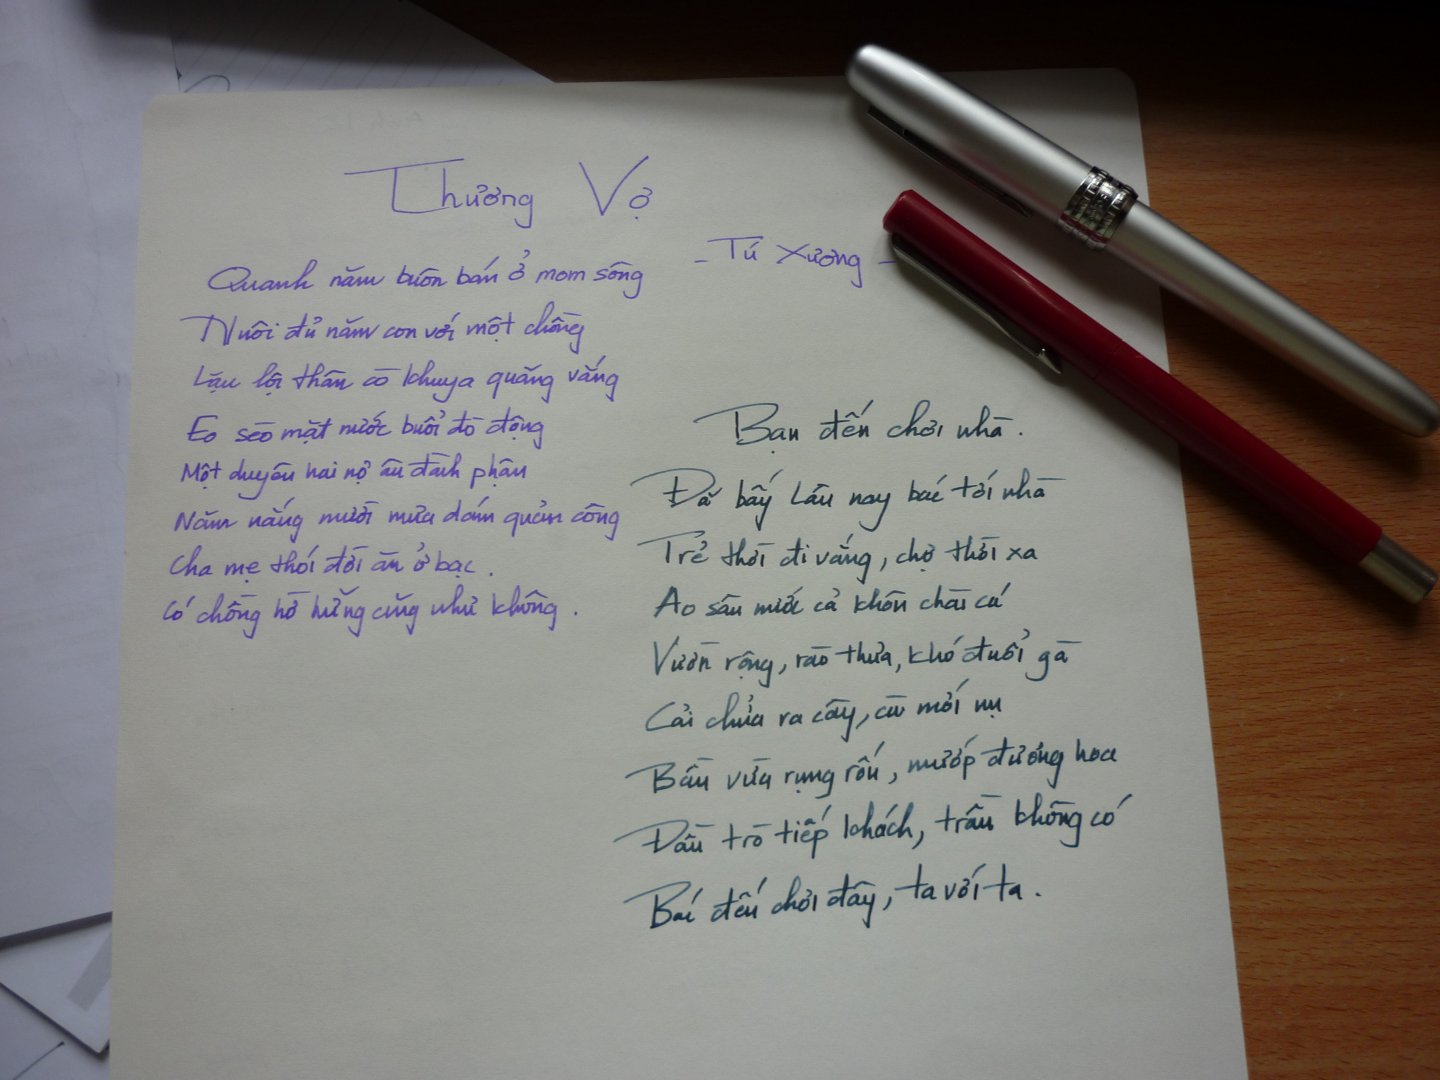 Thương Vợ
- Tú Xương -
Quanh năm buôn bán ở mom sông
Nuôi đủ năm con với một chồng
Lặn lội thân cò khuya quãng vắng
Eo sèo mặt nước buổi đò đông
Một duyên hai nợ âu đành phận
Năm nắng mười mưa dám quản công
Cha mẹ thói đời ăn ở bạc.
Có chồng hờ hững cũng như không.
Bạn đến chơi nhà.
Đã bấy lâu nay bác tới nhà
Trẻ thời đi vắng, chợ thời xa
Ao sâu nước cả khôn chài cá
Vườn rộng, rào thưa, khó đuổi gà
Cải chửa ra cây, cà mới nụ
Bầu vừa rụng rốn, mướp đương hoa
Đầu trò tiếp khách, trầu không có
Bác đến chơi đây, ta với ta.